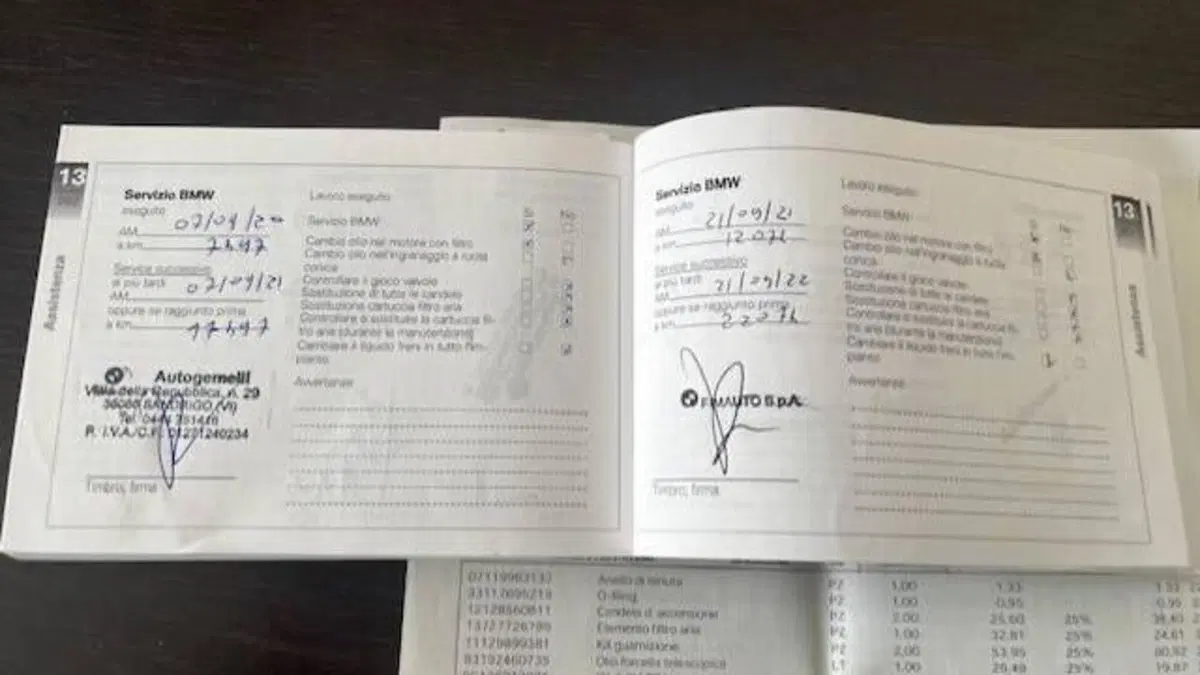 13
Assistenza
Servizio BMW
eseguito
AM 07/09/20
a km 7397
Service successivo
al più tardi 07/09/21
AM
oppure se raggiunto prima
a km 17397
Autogemelli
Viale della Repubblica, n. 29
36066 SANDRIGO (VI)
Tel.
R. I.V.A./C.F. 01231240234
Timbro, firma
Lavoro eseguito
Servizio BMW
Cambio olio nel motore con filtro
Cambio olio nell'ingranaggio a ruota
conica
Controllare il gioco valvole
Sostituzione di tutte le candele
Sostituzione cartuccia filtro aria
Controllare o sostituire la cartuccia fil-
tro aria (durante la manutenzione)
Cambiare il liquido freni in tutto l'im-
pianto
Avvertenze
Servizio BMW
eseguito
AM 21/09/21
a km 12071
Service successivo
al più tardi 21/09/22
AM
oppure se raggiunto prima
a km
FIMAUTO S.p.A.
Timbro, firma
Lavoro eseguito
Servizio BMW
Cambio olio nel motore con filtro
Cambio olio nell'ingranaggio a ruota
conica
Controllare il gioco valvole
Sostituzione di tutte le candele
Sostituzione cartuccia filtro aria
Controllare o sostituire la cartuccia fil-
tro aria (durante la manutenzione)
Cambiare il liquido freni in tutto l'im-
pianto
Avvertenze
13
Assistenza
07119963132 Anello di tenuta PZ 1,00 1.33 1.33
33117695219 O-Ring PZ 1,00 0.95 0.95
12128560811 Candela d' accensione PZ 2,00 25.60 25% 38.40
13727726799 Elemento filtro aria PZ 1,00 32.81 25% 24.61
11129899381 Kit guarnizione PZ 2,00 53.95 25% 80.92
83192460735 Olio forcella telescopica LT 1,00 26.49 25% 19.87